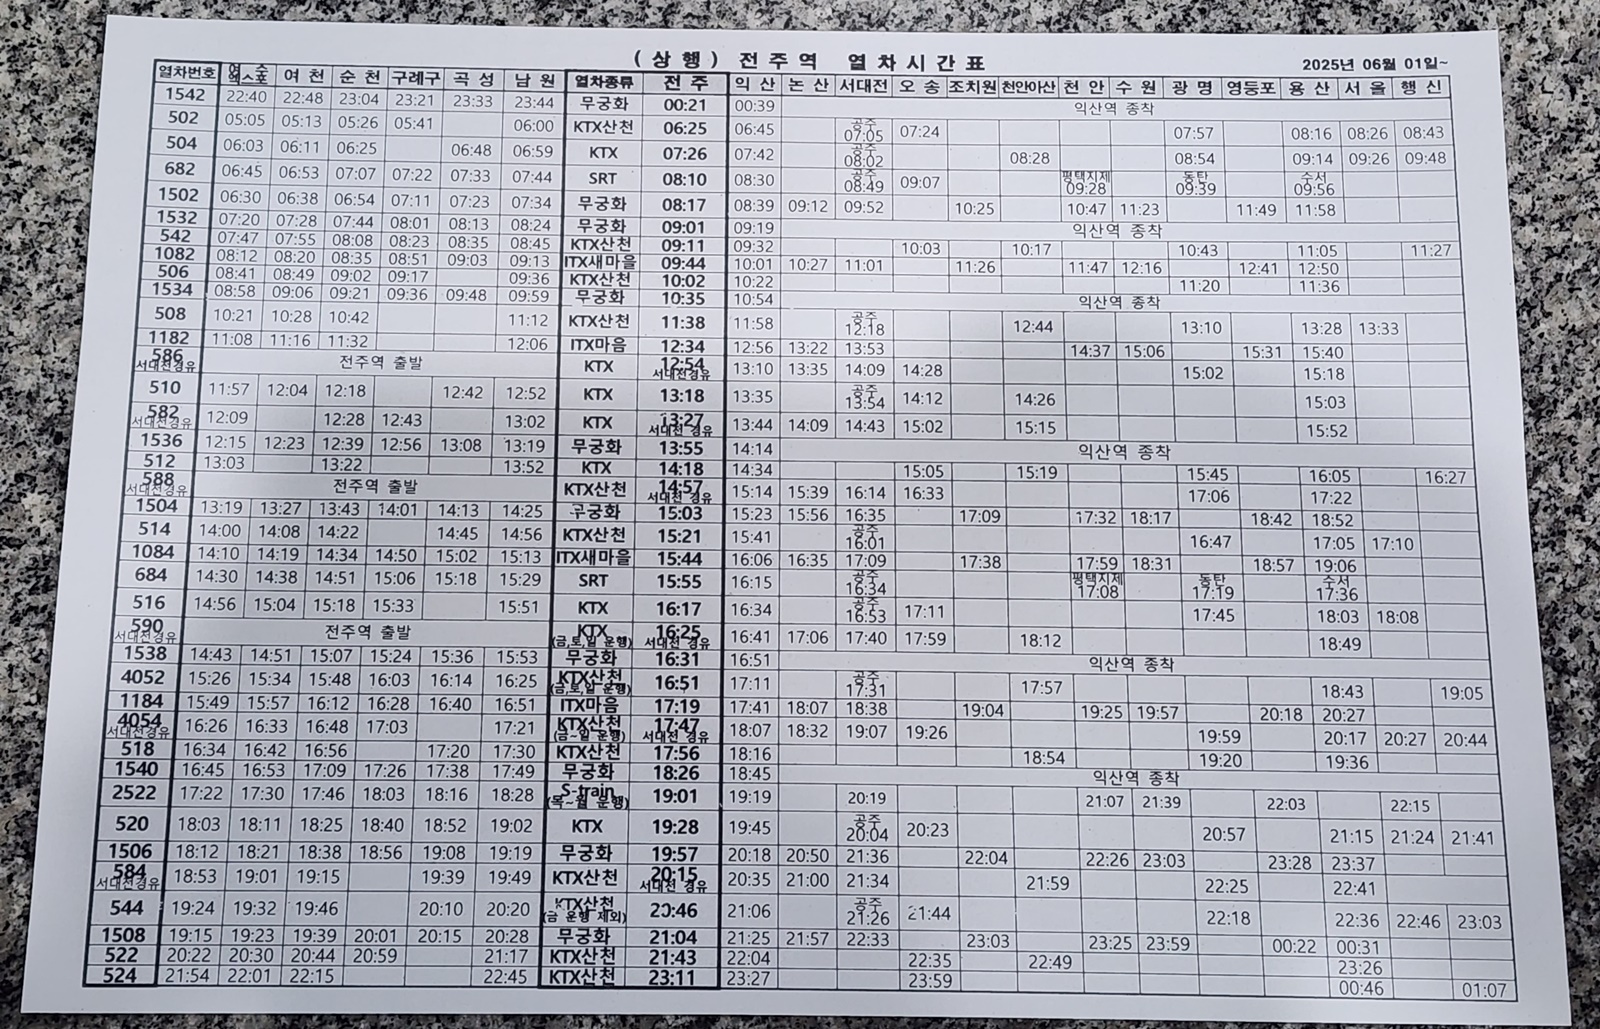 (상행) 전주역 열차시간표
2025년 06월 01일~
열차번호 여수엑스포 여천 순천 구례구 곡성 남원 열차종류 전주 익산 논산 서대전 오송 조치원 천안아산 천안 수원 광명 영등포 용산 서울 행신
1542 22:40 22:48 23:04 23:21 23:33 23:44 무궁화 00:21 00:39 익산역 종착
502 05:05 05:13 05:26 05:41 06:00 KTX산천 06:25 06:45 공주 07:05 07:24 07:57 08:16 08:26 08:43
504 06:03 06:11 06:25 06:48 06:59 KTX 07:26 07:42 공주 08:02 08:28 08:54 09:14 09:26 09:48
682 06:45 06:53 07:07 07:22 07:33 07:44 SRT 08:10 08:30 공주 08:49 09:07 평택지제 09:28 동탄 09:39 수서 09:56
1502 06:30 06:38 06:54 07:11 07:23 07:34 무궁화 08:17 08:39 09:12 09:52 10:25 10:47 11:23 11:49 11:58
1532 07:20 07:28 07:44 08:01 08:13 08:24 무궁화 09:01 09:19 익산역 종착
542 07:47 07:55 08:08 08:23 08:35 08:45 KTX산천 09:11 09:32 10:03 10:17 10:43 11:05 11:27
1082 08:12 08:20 08:35 08:51 09:03 09:13 ITX새마을 09:44 10:01 10:27 11:01 11:26 11:47 12:16 12:41 12:50
506 08:41 08:49 09:02 09:17 09:36 KTX산천 10:02 10:22 11:20 11:36
1534 08:58 09:06 09:21 09:36 09:48 09:59 무궁화 10:35 10:54 익산역 종착
508 10:21 10:28 10:42 11:12 KTX산천 11:38 11:58 공주 12:18 12:44 13:10 13:28 13:33
1182 11:08 11:16 11:32 12:06 ITX마음 12:34 12:56 13:22 13:53 14:37 15:06 15:31 15:40
586 서대전경유 전주역 출발 KTX 12:54 서대전경유 13:10 13:35 14:09 14:28 15:02 15:18
510 11:57 12:04 12:18 12:42 12:52 KTX 13:18 13:35 공주 13:54 14:12 14:26 15:03
582 서대전경유 12:09 12:28 12:43 13:02 KTX 13:27 서대전 경유 13:44 14:09 14:43 15:02 15:15 15:52
1536 12:15 12:23 12:39 12:56 13:08 13:19 무궁화 13:55 14:14 익산역 종착
512 13:03 13:22 13:52 KTX 14:18 14:34 15:05 15:19 15:45 16:05 16:27
588 서대전경유 전주역 출발 KTX산천 14:57 서대전 경유 15:14 15:39 16:14 16:33 17:06 17:22
1504 13:19 13:27 13:43 14:01 14:13 14:25 무궁화 15:03 15:23 15:56 16:35 17:09 17:32 18:17 18:42 18:52
514 14:00 14:08 14:22 14:45 14:56 KTX산천 15:21 15:41 공주 16:01 16:47 17:05 17:10
1084 14:10 14:19 14:34 14:50 15:02 15:13 ITX새마을 15:44 16:06 16:35 17:09 17:38 17:59 18:31 18:57 19:06
684 14:30 14:38 14:51 15:06 15:18 15:29 SRT 15:55 16:15 공주 16:34 평택지제 17:08 동탄 17:19 수서 17:36
516 14:56 15:04 15:18 15:33 15:51 KTX 16:17 16:34 공주 16:53 17:11 17:45 18:03 18:08
590 서대전경유 전주역 출발 KTX (금,토,일 운행) 16:25 서대전 경유 16:41 17:06 17:40 17:59 18:12 18:49
1538 14:43 14:51 15:07 15:24 15:36 15:53 무궁화 16:31 16:51 익산역 종착
4052 15:26 15:34 15:48 16:03 16:14 16:25 KTX산천 (금,토,일 운행) 16:51 17:11 공주 17:31 17:57 18:43 19:05
1184 15:49 15:57 16:12 16:28 16:40 16:51 ITX마음 17:19 17:41 18:07 18:38 19:04 19:25 19:57 20:18 20:27
4054 서대전경유 16:26 16:33 16:48 17:03 17:21 KTX산천 (금~일 운행) 17:47 서대전 경유 18:07 18:32 19:07 19:26 19:59 20:17 20:27 20:44
518 16:34 16:42 16:56 17:20 17:30 KTX산천 17:56 18:16 18:54 19:20 19:36
1540 16:45 16:53 17:09 17:26 17:38 17:49 무궁화 18:26 18:45 익산역 종착
2522 17:22 17:30 17:46 18:03 18:16 18:28 S-train (목~월 운행) 19:01 19:19 20:19 21:07 21:39 22:03 22:15
520 18:03 18:11 18:25 18:40 18:52 19:02 KTX 19:28 19:45 공주 20:04 20:23 20:57 21:15 21:24 21:41
1506 18:12 18:21 18:38 18:56 19:08 19:19 무궁화 19:57 20:18 20:50 21:36 22:04 22:26 23:03 23:28 23:37
584 서대전경유 18:53 19:01 19:15 19:39 19:49 KTX산천 20:15 서대전 경유 20:35 21:00 21:34 21:59 22:25 22:41
544 19:24 19:32 19:46 20:10 20:20 KTX산천 (금 운행 제외) 20:46 21:06 공주 21:26 21:44 22:18 22:36 22:46 23:03
1508 19:15 19:23 19:39 20:01 20:15 20:28 무궁화 21:04 21:25 21:57 22:33 23:03 23:25 23:59 00:22 00:31
522 20:22 20:30 20:44 20:59 21:17 KTX산천 21:43 22:04 22:35 22:49 23:26
524 21:54 22:01 22:15 22:45 KTX산천 23:11 23:27 23:59 00:46 01:07